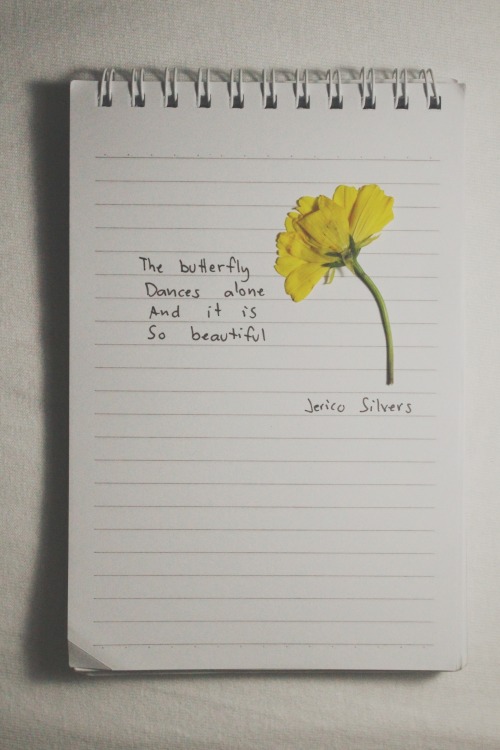 The butterfly
Dances alone
And it is
So beautiful
Jerico Silvers